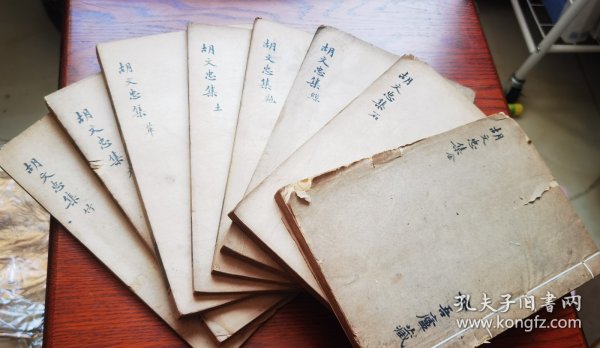 胡文忠集 竹
胡文忠集
胡文忠集 革
胡文忠集 土
胡文忠集 匏
胡文忠集 絲
胡文忠集 石
胡文忠集 金
吾廬藏
孔夫子旧书网
www.kongfz.com